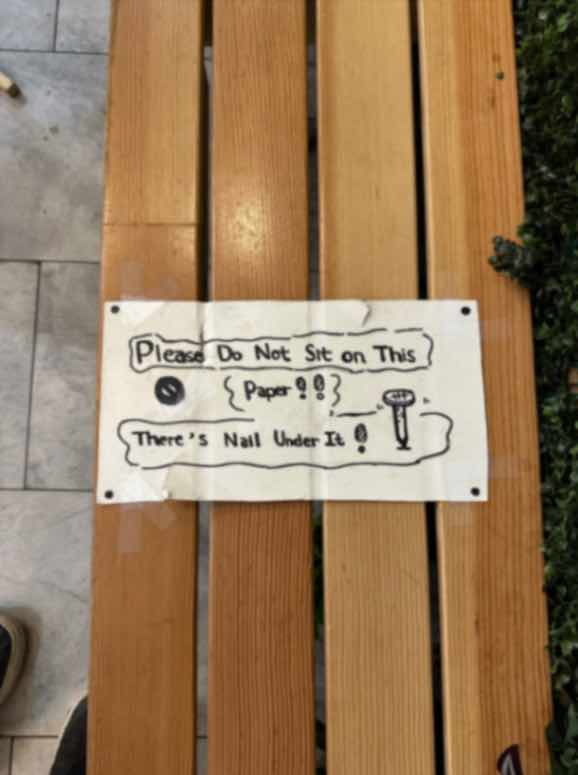 Please Do Not Sit on This
Paper!!
There's Nail Under It !